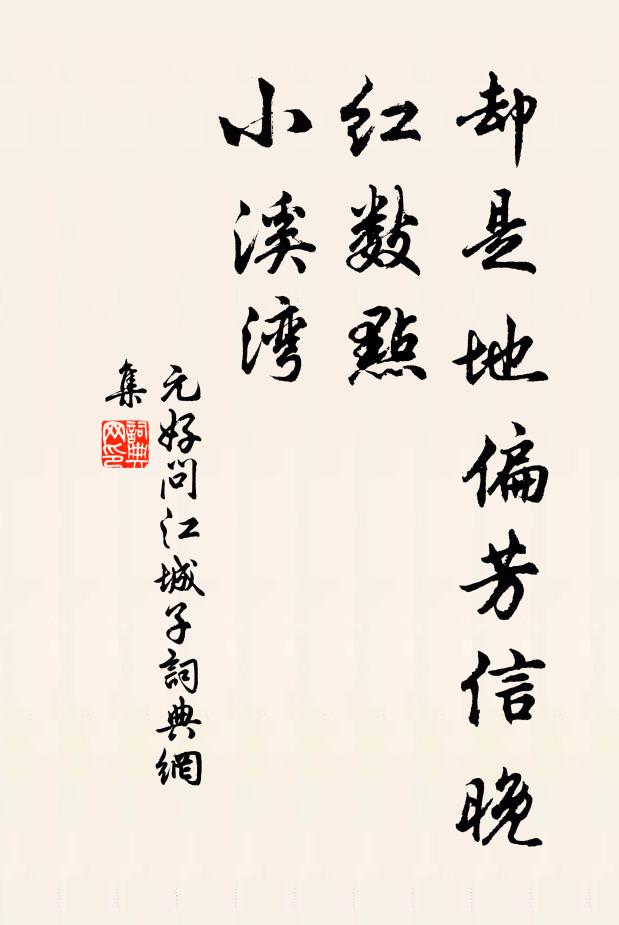 却是地偏芳信晚
红数點
小溪湾
元好问江城子詞典網
集
詞典
网印